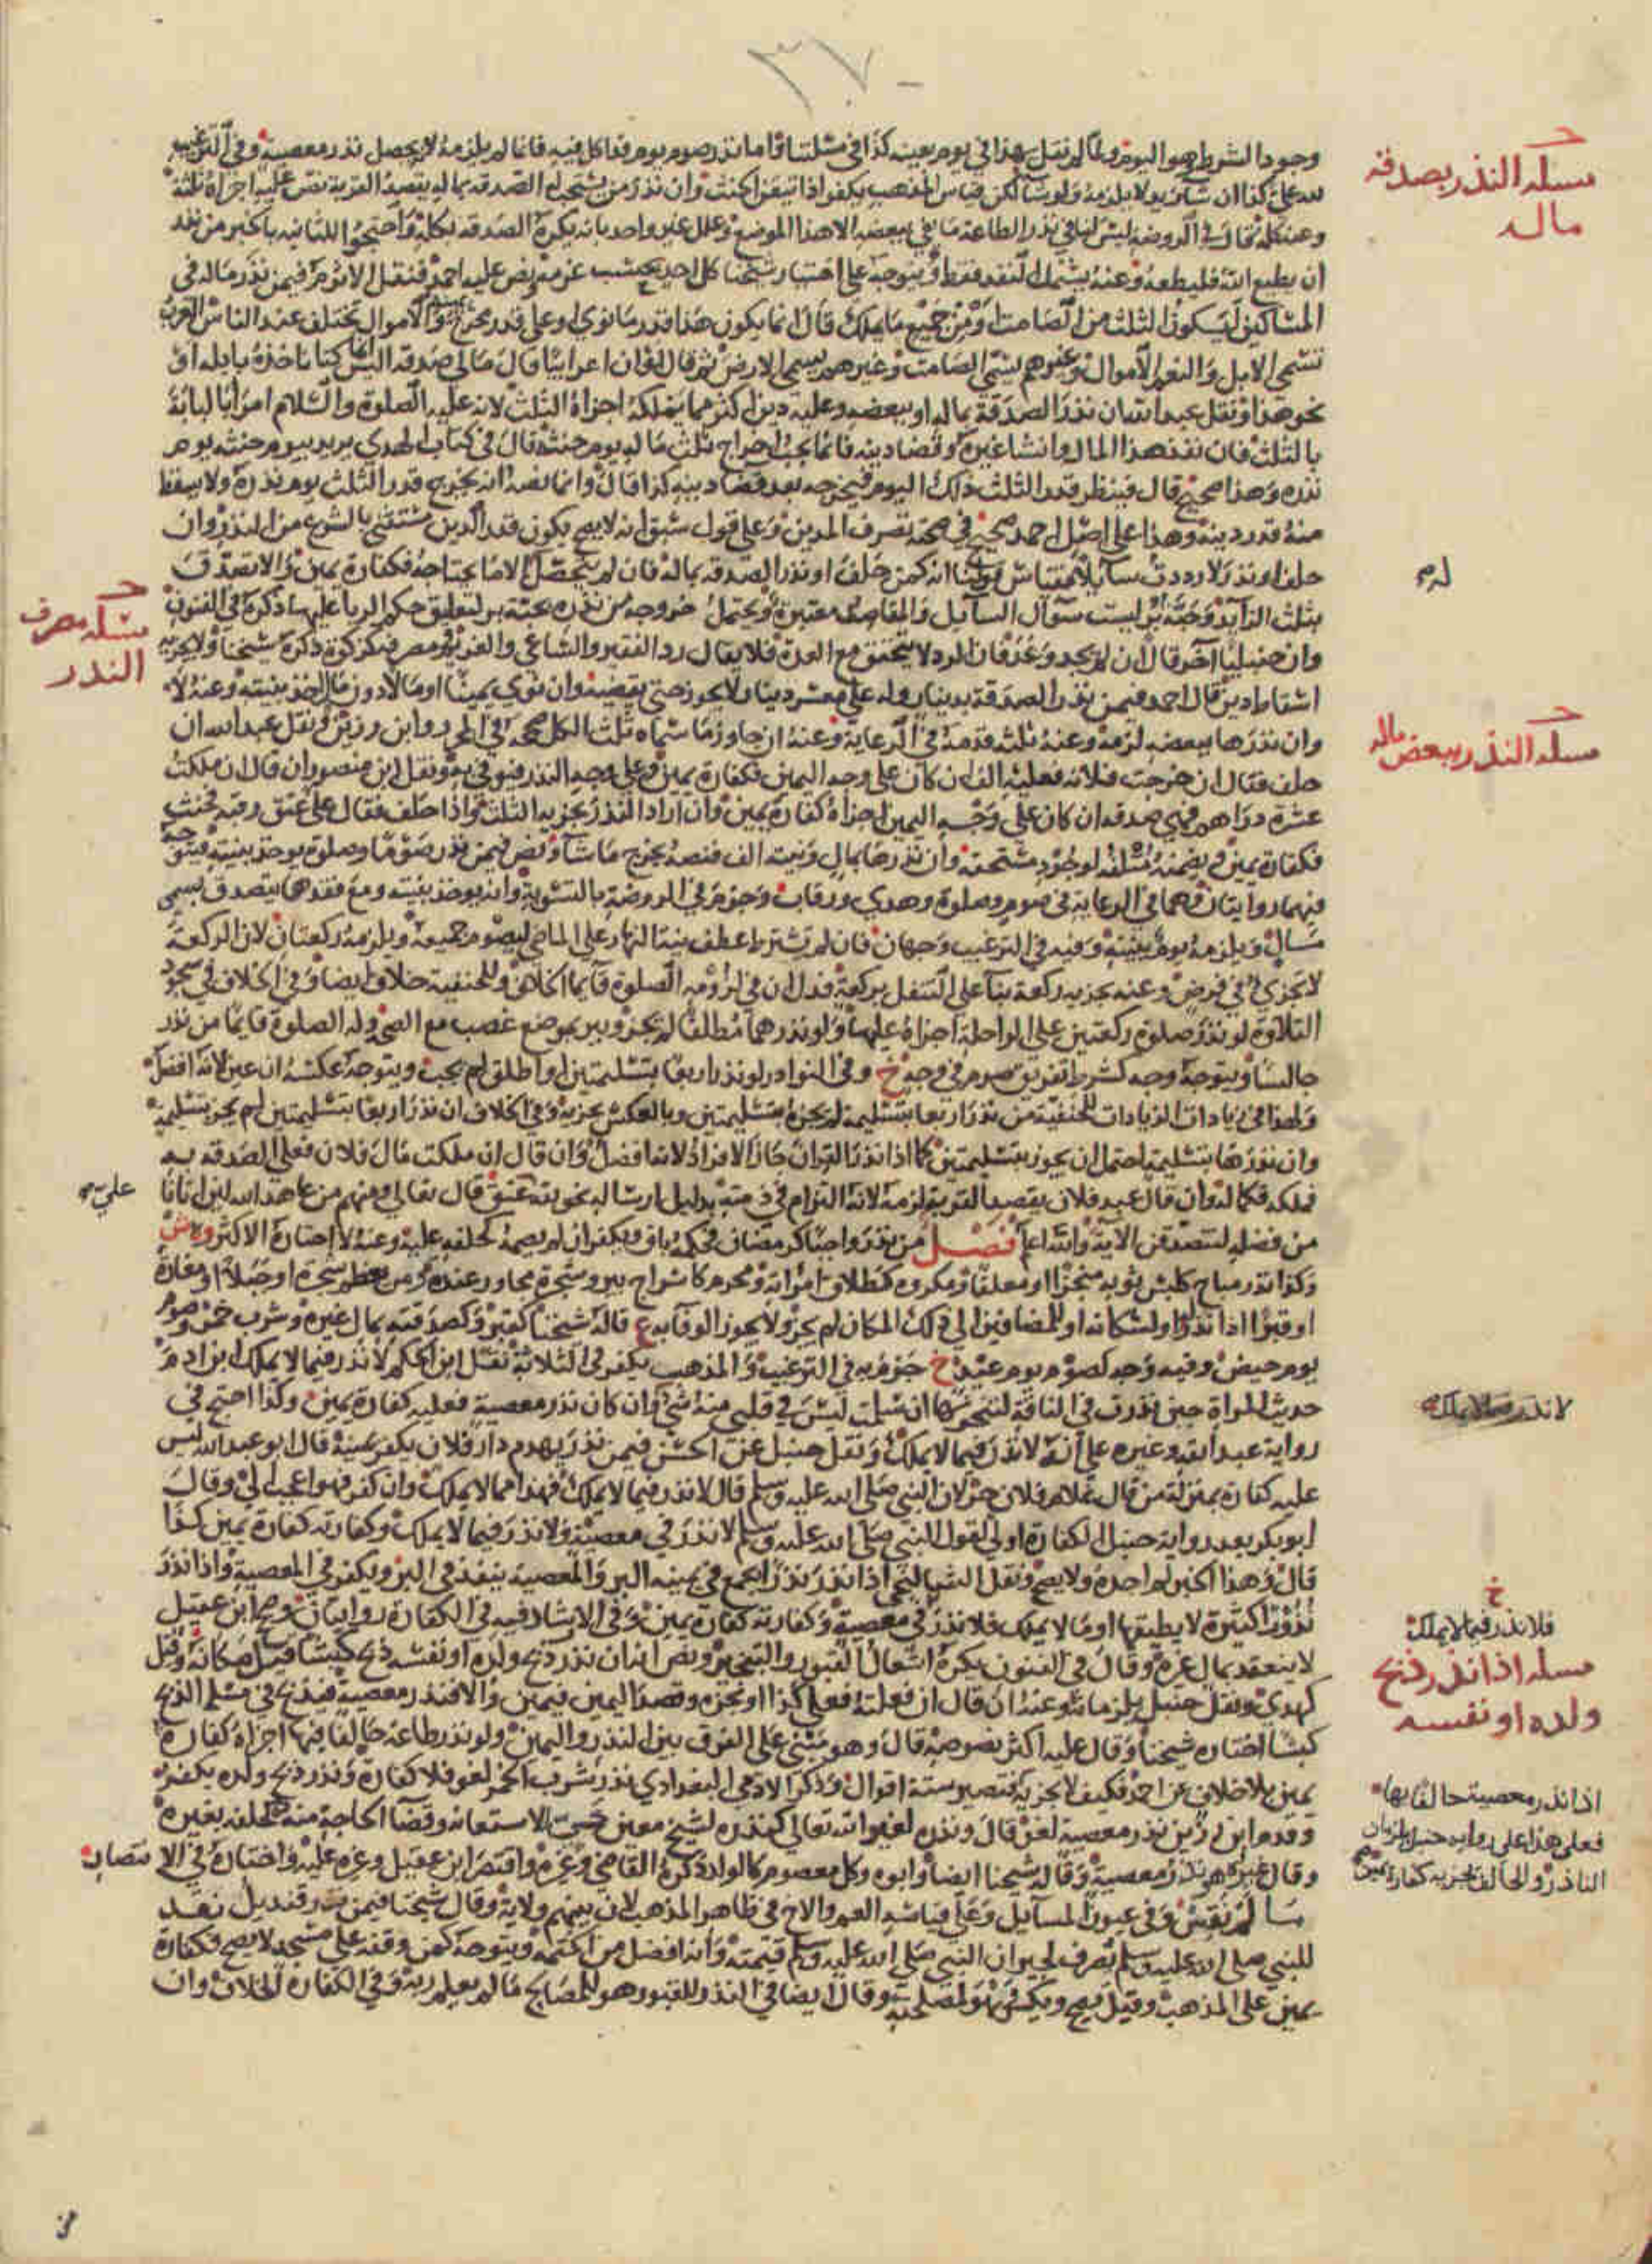 ٣٧٠
وجود الشرط وهو اليوم ولما لم نقل بهذا في يوم بعينه كذا في مسئلتنا واما نذر صوم يوم قد اكل فيه فانما لم يلزمه لانه يحصل نذر معصية وفي الترغيب
لله علي كذا ان شاء زيد لا يلزمه ولو شاء لكن قياس المذهب يكفر اذا تيقن الحنث وان نذر من يستحب له الصدقة بماله بقصد القربة نص عليه اجزاه ثلثه
وعنه كله قال في الروضة ليس لنا في نذر الطاعة ما يفي ببعضه الا هذا الموضع وعلل غير واحد بانه يكره الصدقة بكله واحتجوا للثانية بالخبر من نذر
ان يطيع الله فليطعه وعنه يشمل النقد فقط ويتوجه على اختيار شيخنا كل احد بحسب عزمه نص عليه احمد فنقل الاثرم فيمن نذر ماله في
المساكين ايكون الثلث من الصامت او من جميع ما يملك قال انما يكون هذا قدر ما نوى او على قدر مخرج يمينه والاموال تختلف عند الناس العرب
تسمي الابل والنعم الاموال وغيرهم يسمي الصامت وغيرهم يسمي الارض ثم قال لو ان اعرابيا قال مالي صدقة اليس انما كنا ناخذه بابله او
نحو هذا ونقل عبد الله ان نذر الصدقة بماله او ببعضه وعليه دين اكثر مما يملكه اجزاه الثلث لانه عليه الصلوة والسلام امر ابا لبابة
بالثلث فان نفذ هذا المال وانشا غيره وقضا دينه فانما يجب اخراج ثلث ماله يوم حنثه قال في كتاب الهدي يريد بيوم حنثه يوم
نذره وهذا صحيح قال فينظر قدر الثلث ذلك اليوم فيخرجه بعد قضا دينه كذا قال وانما نصه انه يخرج قدر الثلث يوم نذره ولا يسقط
منه قدر دينه وهذا على اصل احمد صحيح في صحة تصرف المدين وعلى قول سبق انه لا يصح يكون قدر الدين مستثنى بالشرع من النذر وان
حلف او نذر لا رددت سائلا فقياس قولنا انه كمن حلف او نذر الصدقة بماله فان لم يتحصل له الا ما يحتاجه فكفارة يمين والا تصدق
بثلث الزايد وحبة بر ليست سؤال السائل والمقاصد معتبرة ويحتمل خروجه من نذره بحبة بر لتعليق حكم الربا عليها ذكره في الفنون
وان حنبليا آخر قال ان لم يجد وعد فان الرد لا يتحقق مع العدة فلا يقال رد الفقير والشاعي والغريم ومصرفه كزكوة ذكره شيخنا ولا يجزيه
اسقاط دين قال احمد فيمن نذر الصدقة بدينار وله على معسر دينار لا يجوز حتى يقبضه وان نوى يمينا او مالا دون مال اخذ بنيته وعنه لا
وان نذرها ببعضه لزمه وعنه ثلثه قدمه في الرعاية وعنه ان جاوز ما سماه ثلث الكل صححه في المحرر وابن رزين ونقل عبد الله ان
حلف فقال ان خرجت فلانة فعليه الف ان كان على وجه اليمين فكفارة يمين وعلى وجه النذر فيوفي به ونقل ابن منصور ان قال ان ملكت
عشرة دراهم فهي صدقة ان كان على وجه اليمين اجزاه كفارة يمين وان اراد النذر يجزيه الثلث واذا حلف فقال علي عتق رقبة فحنث
فكفارة يمين ويضمنه متلفه لوجود مستحقه وان نذرها بمال ونيته الف فنصه يخرج ما شاء ونص فيمن نذر صوما وصلوة يوخذ بنيته فيتوجه
فيهما روايتان وهما في الرعاية في صوم وصلوة وهدي ورقاب وجزم في الروضة بالتسوية وانه يوخذ بنيته ومع فقدها يتصدق بمسمى
مال ويلزمه يوم بنيته وفيه في الترغيب وجهان فان لم تشترط عطف نية النهار على الماضي ليصوم جميعه ويلزمه ركعتان لان الركعة
لا تجزي في فرض وعنه يجزيه ركعة بنا على التنفل بركعة فدل ان في لزومه الصلوة قايما الخلاف وللحنفية خلاف ايضا وفي الخلاف في سجود
التلاوة لو نذر صلوة ركعتين على الراحلة اجزاه عليها ولو نذرهما مطلقا لم يجز ويبر بموضع غصب مع الصحة وله الصلوة قايما من نذر
جالسا ويتوجه وجه كشرط تفريق صوم في وجه خ وفي النوادر لو نذر اربعا بتسليمتين او اطلق لم يجب ويتوجه عكسه ان عين لانه افضل
ولهذا في زيادات الزيادات للحنفية من نذر اربعا بتسليمة لم يجزه بتسليمتين وبالعكس يجزيه وفي الخلاف ان نذر اربعا بتسليمتين لم يجز بتسليمة
وان نذرها بتسليمة احتمل ان يجوز بتسليمتين كما اذا نذر القران جاز الافراد لانه افضل وان قال ان ملكت مال فلان فعلي الصدقة به
فملكه فكماله وان قال عبد فلان بقصد القربة لزمه لانه التزام في ذمته بدليل ارساله نحو يتة عتق قال تعالى ومنهم من عاهد الله لئن اتانا
من فضله لنصدقن الاية والله اعلم فصل من نذر واجبا كرمضان فحكمه باق ويكفر ان لم يصمه كحلفه عليه وعنه لا اختاره الاكثر وم ش
وكذا نذر مباح كلبس ثوبه منجزا او معلقا ومكروه كطلاق امراته ومحرم كاسراج بير وشجرة مجاور عنده ومن يعظم شجرة او جبلا او مغارة
او قبرا اذا نذر له او لسكانه او للمضافين الى ذلك المكان لم يجز ولا يجوز الوفا به ع قاله شيخنا كقبر وكصدقته بمال غيره وشرب خمر وصوم
يوم حيض وفيه وجه كصوم يوم عيد خ جزم به في الترغيب والمذهب يكفر في الثلاثة نقل ابن الحكم لا نذر فيما لا يملك ابن ادم
حديث المراة حين نذرت في الناقة لتنحرنها ان سلمت ليس في قلبي منه شي وان كان نذر معصية فعليه كفارة يمين وكذا احتج في
رواية عبد الله وغيره على انه لا نذر فيما لا يملك ونقل حنبل عن الحسن فيمن نذر يهدم دار فلان يكفر يمينه قال ابو عبد الله ليس
عليه كفارة بمنزلة من قال غلام فلان حر لان النبي صلى الله عليه وسلم قال لا نذر فيما لا يملك فهذا مما لا يملك وان كفر فهو اعجب الي وقال
ابو بكر بعد رواية حنبل الكفارة اولى لقول النبي صلى الله عليه وسلم لا نذر في معصية ولا نذر فيما لا يملك وكفارته كفارة يمين كذا
قال وهذا الخبر لم اجده ولا يصح ونقل الشالنجي اذا نذر نذرا يجمع في يمينه البر والمعصية ينفذ في البر ويكفر في المعصية واذا نذر
نذورا كثيرة لا يطيقها او ما لا يملك فلا نذر في معصية وكفارته كفارة يمين وفي الارشاد فيه في الكفارة روايتان وصحح ابن عقيل
لا ينعقد بمال غيره وقال في الفنون يكره اشعال القبور والتبخير ونص انه ان نذر ذبح ولده او نفسه ذبح كبشا قيل مكانه وقيل
كهدي ونقل حنبل يلزمانه وعنه ان قال ان فعلته فعلي كذا او نحوه وقصد اليمين فيمين والا فنذر معصية فيذبح في مسئلة الذبح
كبشا اختاره شيخنا وقال عليه اكثر نصوصه قال وهو مبني على الفرق بين النذر واليمين ولو نذر طاعة حالفا فيها اجزاه كفارة
يمين بلا خلاف عن احمد فكيف لا يجزيه فتصير ستة اقوال وذكر الادمي البغدادي نذر شرب الخمر لغو فلا كفارة ونذر ذبح ولده يكفر به
وقدم ابن رزين نذر معصية لغو قال ونذره لغير الله تعالى كنذره لشيخ معين حي للاستعانة وقضا الحاجة منه كحلفه بغيره
وقال غيره هو نذر معصية وقاله شيخنا ايضا وابوه وكل معصوم كالولد ذكره القاضي وغيره واقتصر ابن عقيل وغيره عليه واختاره في الانتصار
ما لم نقس وفي عيون المسائل وعلى قياسه العم والاخ في ظاهر المذهب لان بينهم ولاية وقال شيخنا فيمن نذر قنديل نقد
للنبي صلى الله عليه وسلم تصرف لجيران النبي صلى الله عليه وسلم قيمته وانه افضل من الختمة ويتوجه كمن وقفه على مسجد لا يصح فكفارة
يمين على المذهب وقيل يصح ويكسر وهو لمصلحته وقال ايضا في النذر للقبور هو للمصالح ما لم يعلم ربه وفي الكفارة الخلاف وان
مسئلة النذر بصدقة
ماله
له م
مسئلة مصرف
النذر
مسئلة النذر ببعض ماله
علي م
لا نذر فيما لا يملك
خ
فلا نذر فيما لا يملك
مسئلة اذا نذر ذبح
ولده او نفسه
اذا نذر معصية حالفا بها
فعلى هذا على رواية حنبل يلزمان
الناذر والحالف يجزيه كفارة يمين